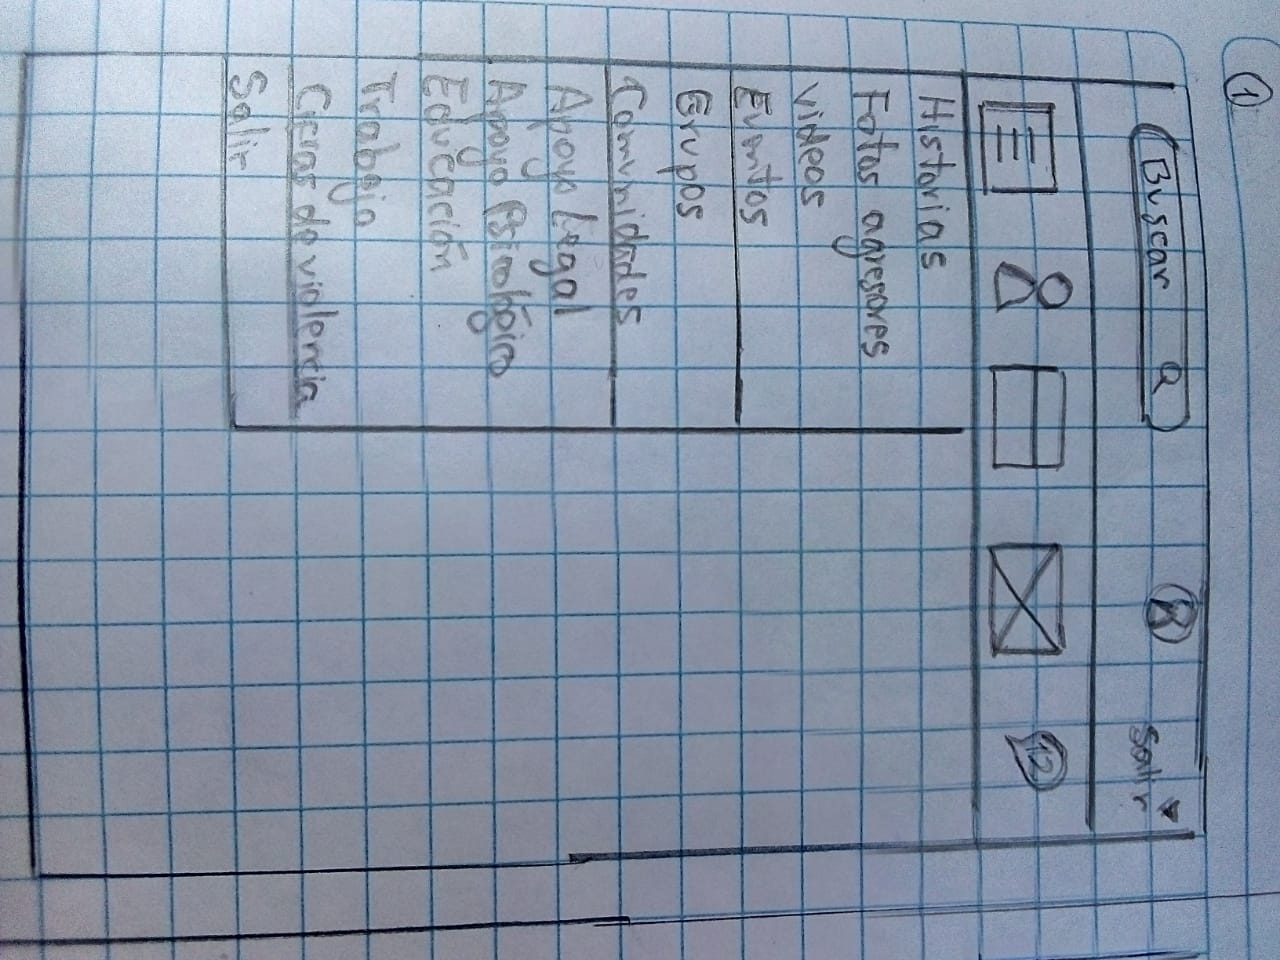 1
Buscar
Salir
12
Historias
Fotos agresores
Videos
Eventos
Grupos
Comunidades
Apoyo Legal
Apoyo Psicológico
Educación
Trabajo
Ceras de violencia
Salir